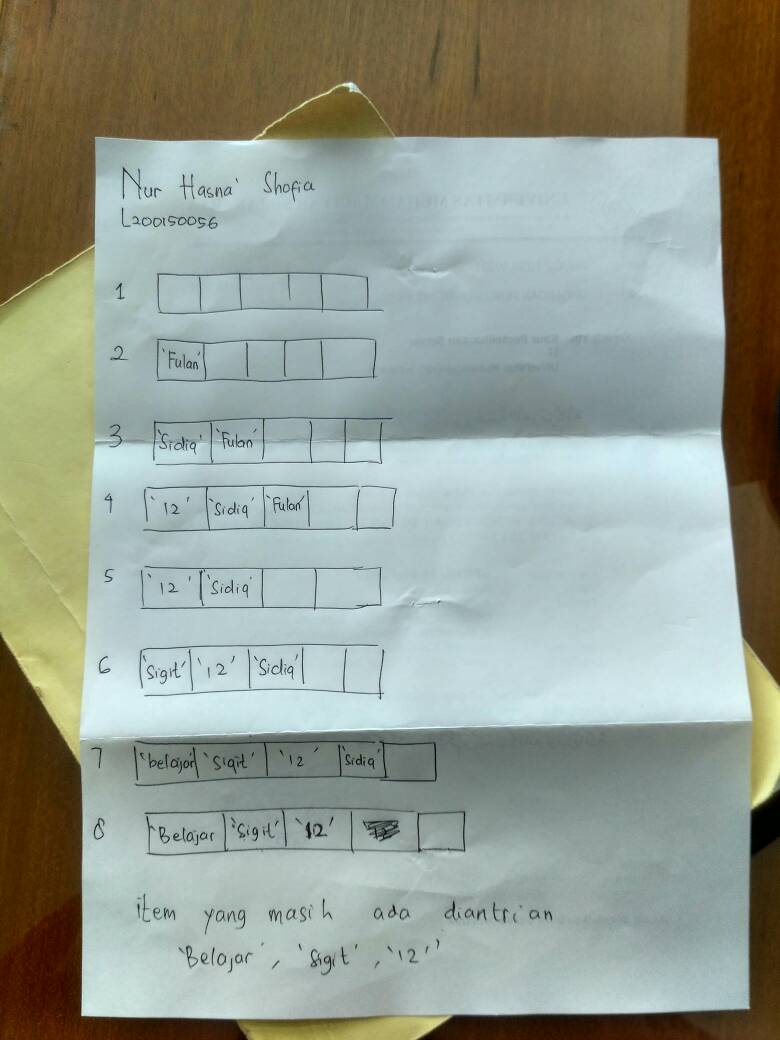 Nur Hasna' Shofia
L200150056
1
2 'Fulan'
3 'Sidiq' 'Fulan'
4 '12' 'Sidiq' 'Fulan'
5 '12' 'Sidiq'
6 'Sigit' '12' 'Sidiq'
7 'belajar' 'Sigit' '12' 'Sidiq'
8 'Belajar 'Sigit' '12'
item yang masih ada diantrian
'Belajar', 'Sigit', '12'